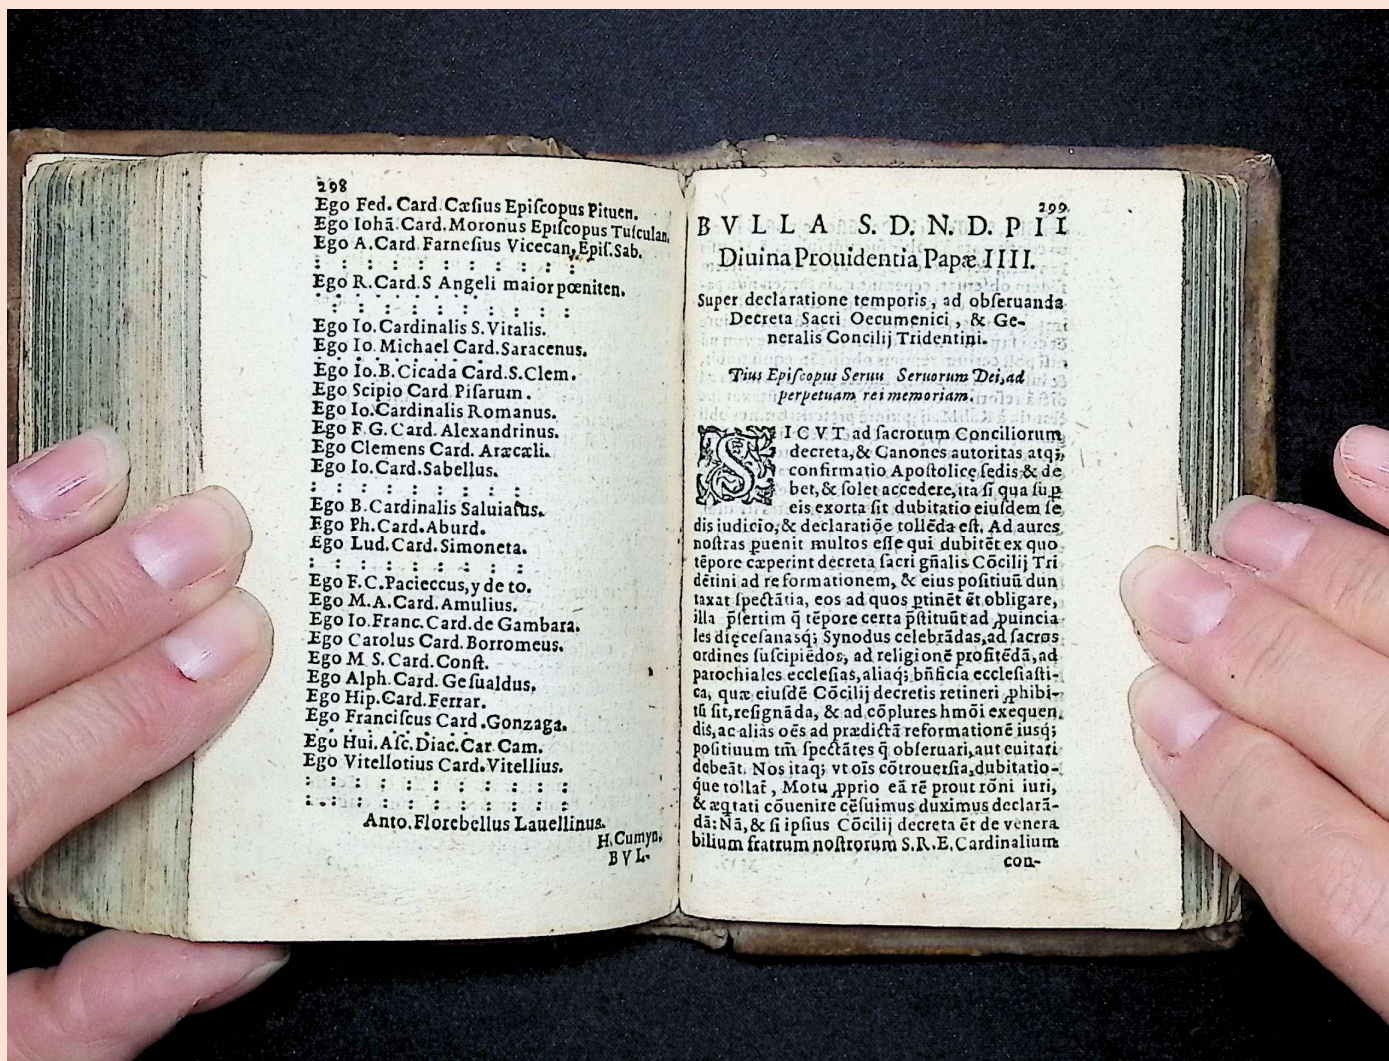 298
Ego Fed. Card. Cæſius Epiſcopus Pituen.
Ego Iohā. Card. Moronus Epiſcopus Tuſculan.
Ego A. Card. Farneſius Vicecan, Epiſ. Sab.
: : : : : : : : : :
Ego R. Card. S Angeli maior pœniten.
: : : : : : : : : :
Ego Io. Cardinalis S. Vitalis.
Ego Io. Michael Card. Saracenus.
Ego Io. B. Cicada Card. S. Clem.
Ego Scipio Card. Piſarum.
Ego Io. Cardinalis Romanus.
Ego F. G. Card. Alexandrinus.
Ego Clemens Card. Aræcæli.
Ego Io. Card. Sabellus.
: : : : : : : :
Ego B. Cardinalis Saluiatus.
Ego Ph. Card. Aburd.
Ego Lud. Card. Simoneta.
: : : : : : : :
Ego F. C. Pacieccus, y de to.
Ego M. A. Card. Amulius.
Ego Io. Franc. Card. de Gambara.
Ego Carolus Card. Borromeus.
Ego M S. Card. Conſt.
Ego Alph. Card. Geſualdus.
Ego Hip. Card. Ferrar.
Ego Franciſcus Card. Gonzaga.
Ego Hui. Aſc. Diac. Car. Cam.
Ego Vitellotius Card. Vitellius.
: : : : : : : : : :
: : : : : : : : : :
Anto. Florebellus Lauellinus.
H. Cumyn.
BVL-
299
BVLLA S. D. N. D. PII
Diuina Prouidentia Papæ IIII.
Super declaratione temporis, ad obſeruanda
Decreta Sacri Oecumenici, & Ge-
neralis Concilij Tridentini.
Pius Epiſcopus Seruu Seruorum Dei, ad
perpetuam rei memoriam.
SICVT ad ſacrorum Conciliorum
decreta, & Canones autoritas atq;,
confirmatio Apoſtolicę ſedis & de
bet, & ſolet accedere, ita ſi qua ſuꝑ
eis exorta ſit dubitatio eiuſdem ſe
dis iudicio, & declaratiōe tollēda eſt. Ad aures
noſtras ꝑuenit multos eſſe qui dubitēt ex quo
tēpore cæperint decreta ſacri gñalis Cōcilij Tri
dētini ad reformationem, & eius poſitiuū dun
taxat ſpectātia, eos ad quos ꝑtinēt ēt obligare,
illa p̄ſertim q̄ tēpore certa p̄ſtituūt ad ꝓuincia
les dięceſanasq; Synodus celebrādas, ad ſacros
ordines ſuſcipiēdos, ad religionē profitēdā, ad
parochiales eccleſias, aliaq; bñficia eccleſiaſti-
ca, quæ eiuſdē Cōcilij decretis retineri ꝓhibi-
tū ſit, reſignāda, & ad cōplures hmōi exequen.
dis, ac aliàs oēs ad prædictā reformationē iusq;
poſitiuum tm̄ ſpectātes q̄ obſeruari, aut euitari
debeāt. Nos itaq; vt oīs cōtrouerſia, dubitatio-
que tollat̄, Motu ꝓprio eā rē prout rōni iuri,
& æqtati cōuenire cēſuimus duximus declarā-
dā: Nā, & ſi ipſius Cōcilij decreta ēt de venera
bilium fratrum noſtrorum S. R. E. Cardinalium
con-